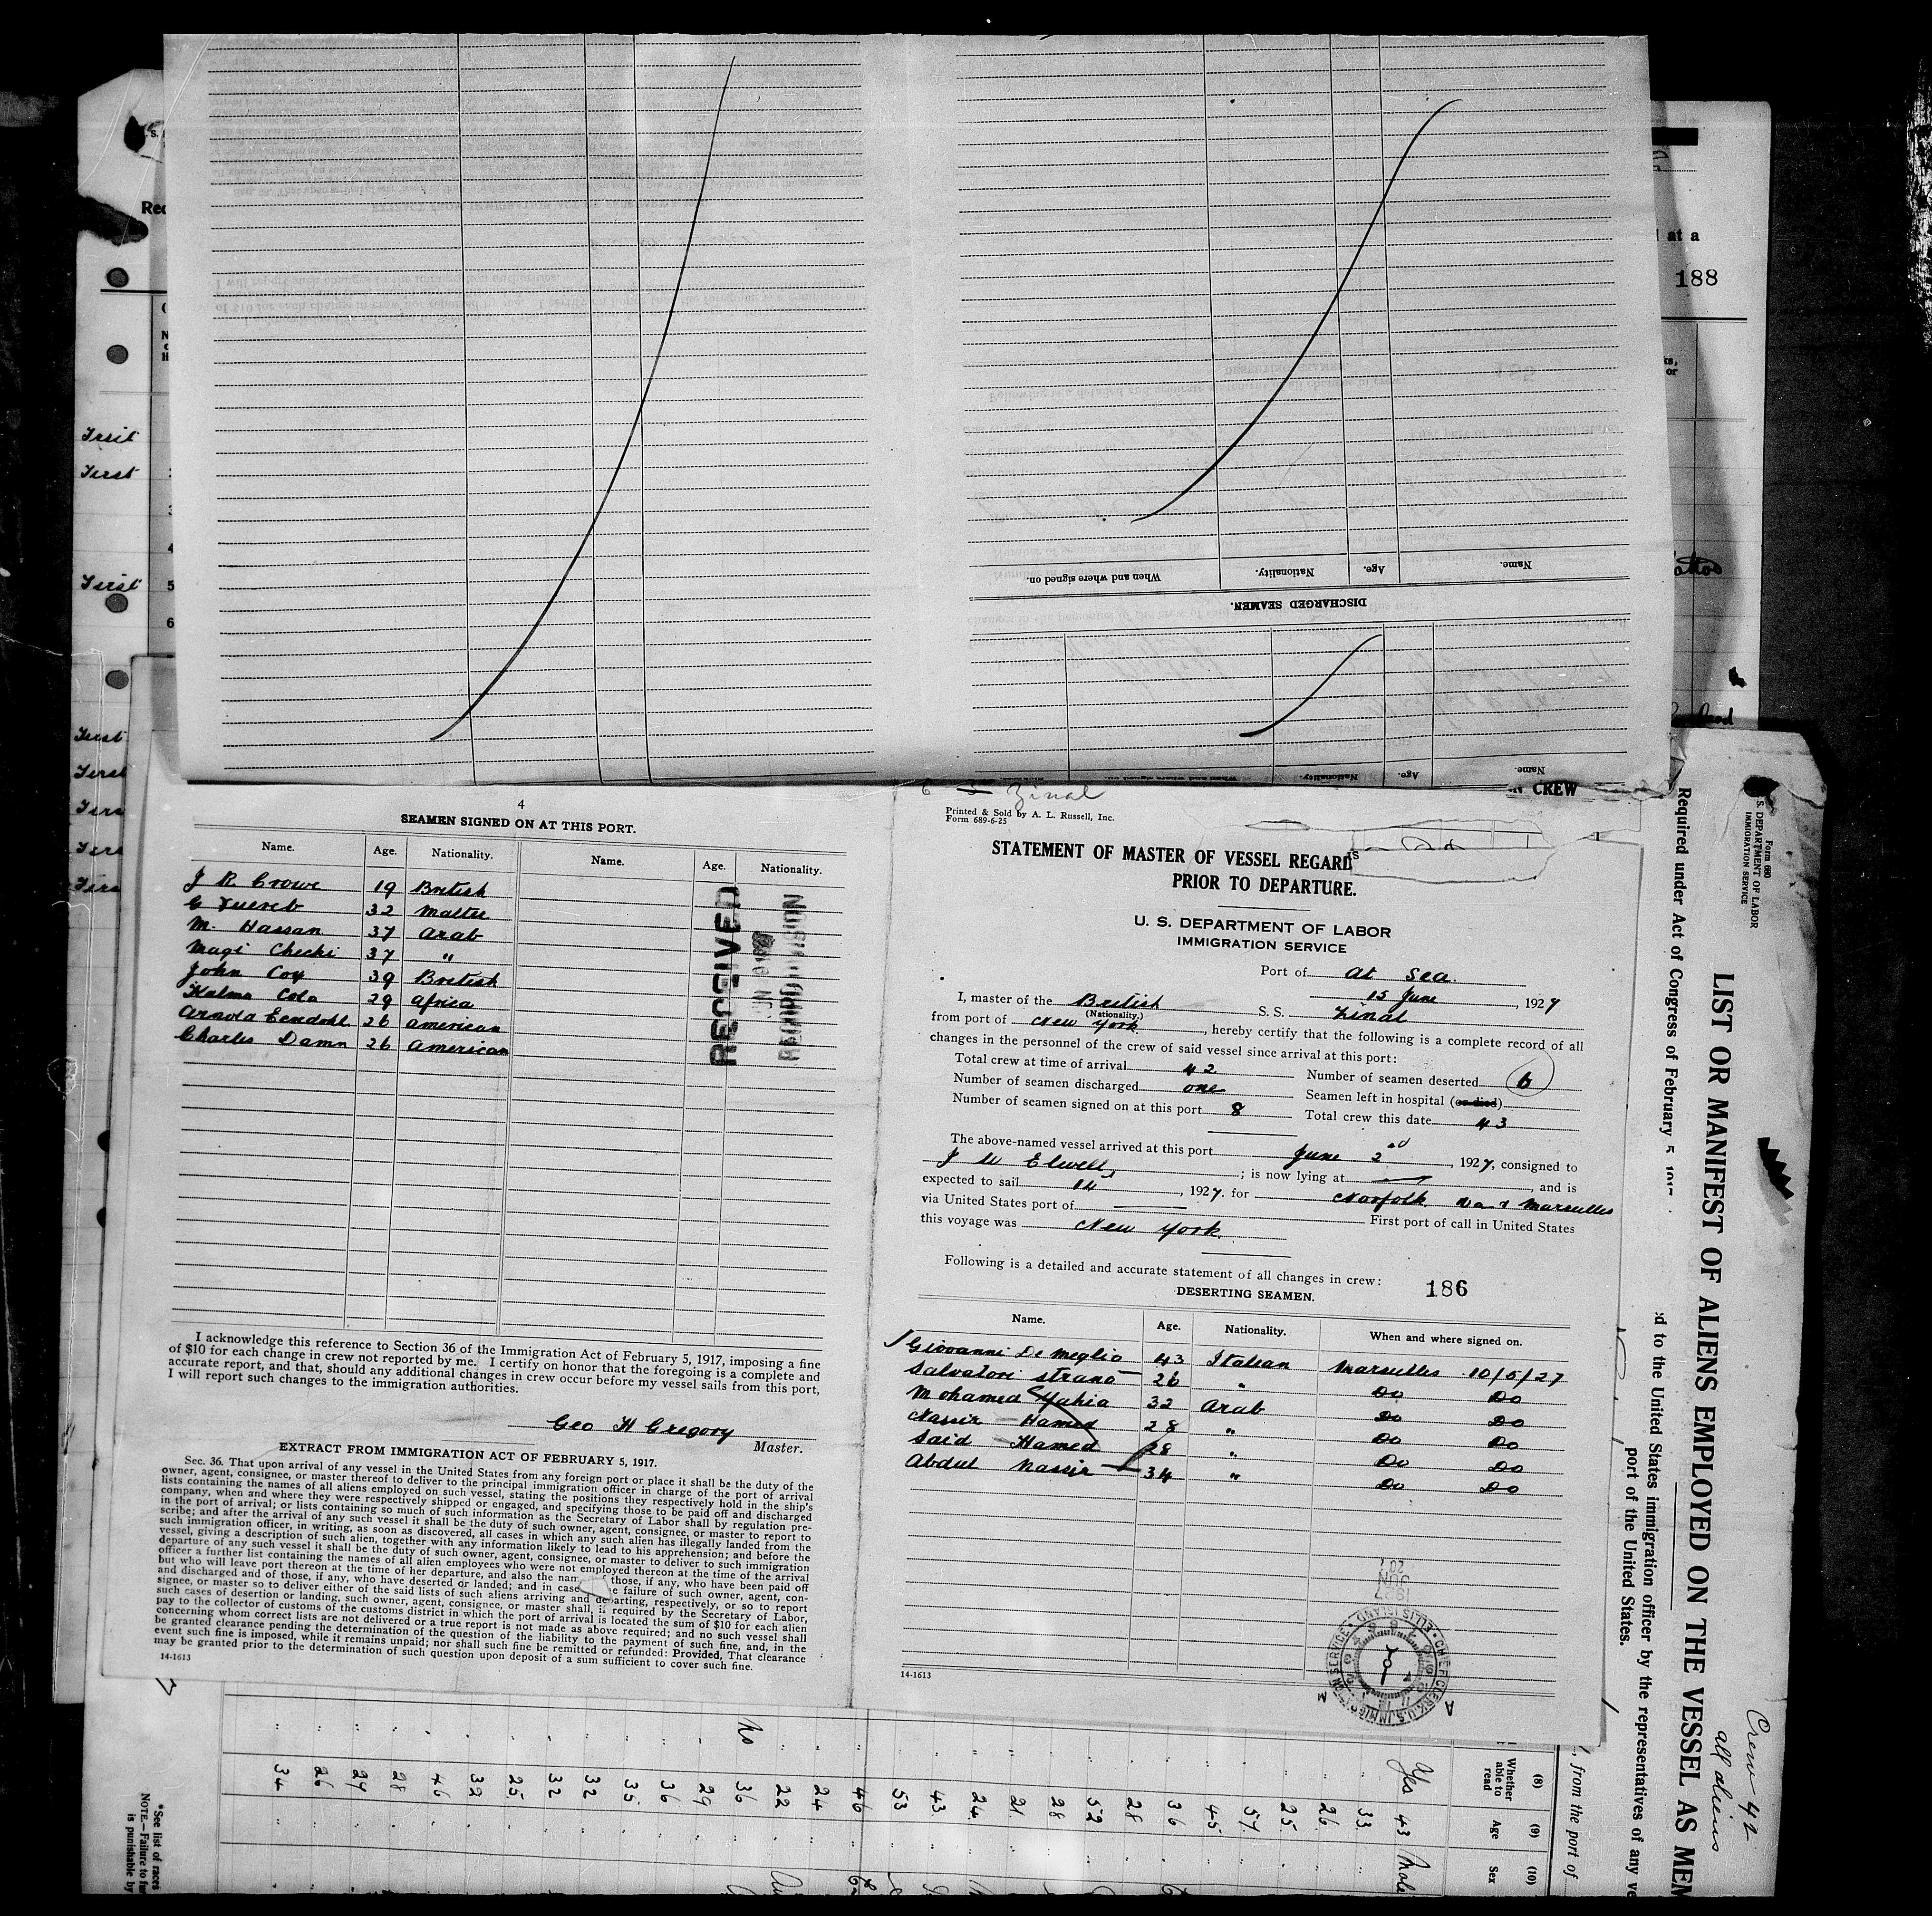 4
SEAMEN SIGNED ON AT THIS PORT.
Name. Age. Nationality. Name. Age. Nationality.
J R Crowe 19 British
G Xuereb 32 Maltese
M. Hassan 37 Arab
Magi Checki 37 "
John Cox 39 British
Kalma Cola 29 Africa
Arnold Eendahl 26 American
Charles Damn 26 American
RECEIVED
RECORD DIVISION
I acknowledge this reference to Section 36 of the Immigration Act of February 5, 1917, imposing a fine
of $10 for each change in crew not reported by me. I certify on honor that the foregoing is a complete and
accurate report, and that, should any additional changes in crew occur before my vessel sails from this port,
I will report such changes to the immigration authorities.
Geo H Gregory
Master.
EXTRACT FROM IMMIGRATION ACT OF FEBRUARY 5, 1917.
Sec. 36. That upon arrival of any vessel in the United States from any foreign port or place it shall be the duty of the
owner, agent, consignee, or master thereof to deliver to the principal immigration officer in charge of the port of arrival
lists containing the names of all aliens employed on such vessel, stating the positions they respectively hold in the ship's
company, when and where they were respectively shipped or engaged, and specifying those to be paid off and discharged
in the port of arrival; or lists containing so much of such information as the Secretary of Labor shall by regulation pre-
scribe; and after the arrival of any such vessel it shall be the duty of such owner, agent, consignee, or master to report to
such immigration officer, in writing, as soon as discovered, all cases in which any such alien has illegally landed from the
vessel, giving a description of such alien, together with any information likely to lead to his apprehension; and before the
departure of any such vessel it shall be the duty of such owner, agent, consignee, or master to deliver to such immigration
officer a further list containing the names of all alien employees who were not employed thereon at the time of the arrival
but who will leave port thereon at the time of her departure, and also the nam of those, if any, who have been paid off
and discharged and of those, if any, who have deserted or landed; and in case e failure of such owner, agent, con-
signee, or master so to deliver either of the said lists of such aliens arriving and departing, respectively, or so to report
such cases of desertion or landing, such owner, agent, consignee, or master shall, if required by the Secretary of Labor,
pay to the collector of customs of the customs district in which the port of arrival is located the sum of $10 for each alien
concerning whom correct lists are not delivered or a true report is not made as above required; and no such vessel shall
be granted clearance pending the determination of the question of the liability to the payment of such fine, and, in the
event such fine is imposed, while it remains unpaid; nor shall such fine be remitted or refunded: Provided, That clearance
may be granted prior to the determination of such question upon deposit of a sum sufficient to cover such fine.
14-1613
Zinal
Printed & Sold by A. L. Russell, Inc.
Form 689-6-25
N CREW
STATEMENT OF MASTER OF VESSEL REGARD
PRIOR TO DEPARTURE.
U. S. DEPARTMENT OF LABOR
IMMIGRATION SERVICE
Port of At Sea.
15 June, 1927
I, master of the British S. S. Zinal
(Nationality.)
from port of New York, hereby certify that the following is a complete record of all
changes in the personnel of the crew of said vessel since arrival at this port:
Total crew at time of arrival 42 Number of seamen deserted 6
Number of seamen discharged one Seamen left in hospital (or died)
Number of seamen signed on at this port 8 Total crew this date 43
The above-named vessel arrived at this port June 2nd, 1927, consigned to
J W Elwell; is now lying at —, and is
expected to sail 14, 1927. for Norfolk Va & Marseilles
via United States port of — First port of call in United States
this voyage was New York.
Following is a detailed and accurate statement of all changes in crew:
186
DESERTING SEAMEN.
Name. Age. Nationality. When and where signed on.
Giovanni De Meglio 43 Italian Marseilles 10/5/27
Salvatore Strano 26 " Do Do
Mohamed Yahia 32 Arab Do Do
Nassir Hamed 28 " Do Do
Said Hamed 28 " Do Do
Abdul Nassir 34 " Do Do
1927
JUN
20
CHIEF CLERK, U.S. IMMIGRATION SERVICE • ELLIS ISLAND
A M
14-1613
DISCHARGED SEAMEN.
Name. Age. Nationality. When and where signed on.
Name. Age. Nationality. When and where signed on.
at a
188
First
First
First
First
First
Form 680
S. DEPARTMENT OF LABOR
IMMIGRATION SERVICE
LIST OR MANIFEST OF ALIENS EMPLOYED ON THE VESSEL AS MEM
Required under Act of Congress of February 5, 1917
d to the United States immigration officer by the representatives of any ve
port of the United States.
, from the port of
Crew 42
all aliens
(8) Whether able to read
(9) Age
(10) Sex
Yes 43 Male
33
26
25
57
45
36
28
52
28
21
24
43
53
46
24
22
No 36
29
36
35
32
32
25
32
46
28
29
26
34
* See list of races
NOTE.—Failure to fu
is punishable by